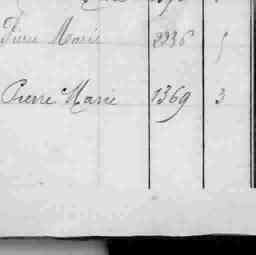 Pierre Marie 2936 5
Pierre Marie 1369 3